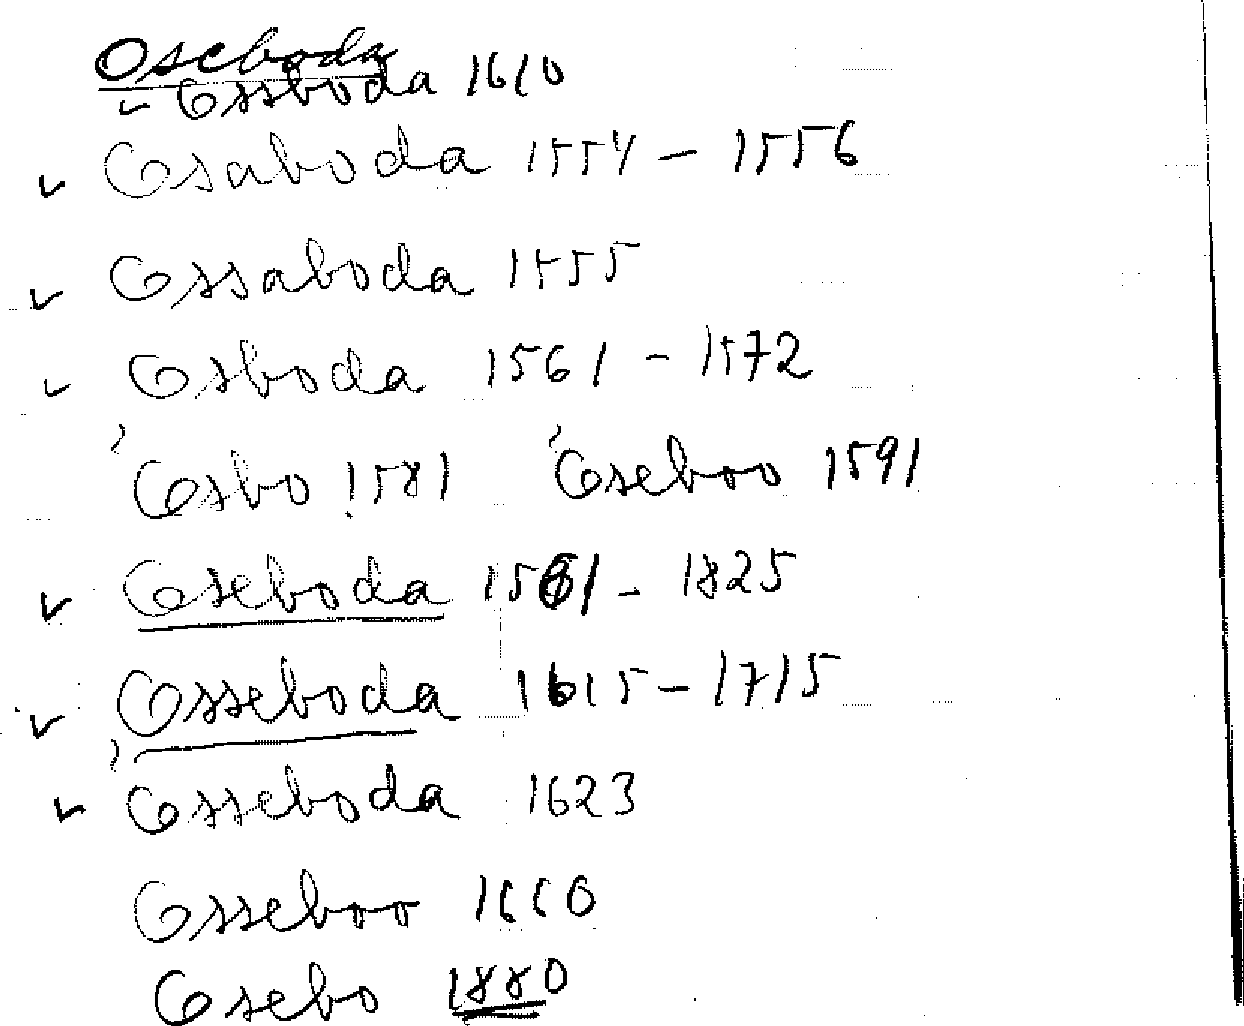 Oseboda
✓ Ossboda 1610
✓ Osaboda 1554 – 1556
✓ Ossaboda 1555
✓ Osboda 1561 – 1572
’Osbo 1581 ’Oseboo 1591
✓ Oseboda 1561 – 1825
✓ Osseboda 1615 – 1715
✓ ’Osseboda 1623
Osseboo 1660
Osebo 1880